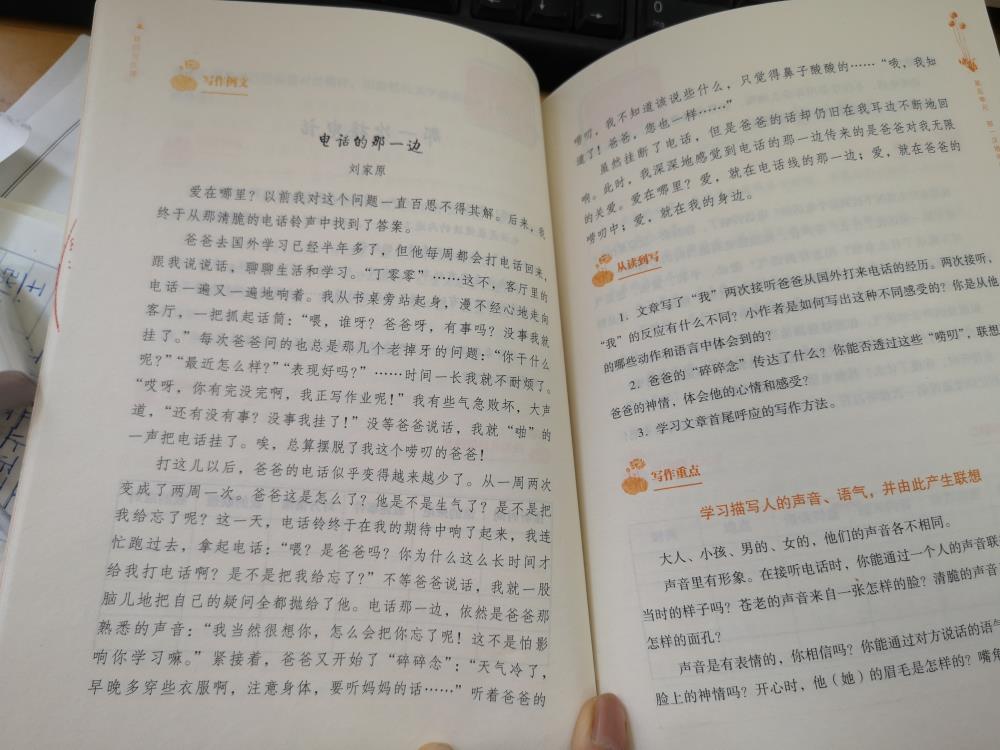 写作例文
电话的那一边
刘家原
爱在哪里？以前我对这个问题一直百思不得其解。后来，我
终于从那清脆的电话铃声中找到了答案。
爸爸去国外学习已经半年多了，但他每周都会打电话回来，
跟我说说话，聊聊生活和学习。“丁零零”……这不，客厅里的
电话一遍又一遍地响着。我从书桌旁站起身，漫不经心地走向
客厅，一把抓起话筒：“喂，谁呀？爸爸呀，有事吗？没事我就
挂了。”每次爸爸问的也总是那几个老掉牙的问题：“你干什么
呢？”“最近怎么样？”“表现好吗？”……时间一长我就不耐烦了。
“哎呀，你有完没完啊，我正写作业呢！”我有些气急败坏，大声
道，“还有没有事？没事我挂了！”没等爸爸说话，我就“啪”的
一声把电话挂了。唉，总算摆脱了我这个唠叨的爸爸！
打这儿以后，爸爸的电话似乎变得越来越少了。从一周两次
变成了两周一次。爸爸这是怎么了？他是不是生气了？是不是把
我给忘了呢？这一天，电话铃终于在我的期待中响了起来，我连
忙跑过去，拿起电话：“喂？是爸爸吗？你为什么这么长时间才
给我打电话啊？是不是把我给忘了？”不等爸爸说话，我就一股
脑儿地把自己的疑问全都抛给了他。电话那一边，依然是爸爸那
熟悉的声音：“我当然很想你，怎么会把你忘了呢！这不是怕影
响你学习嘛。”紧接着，爸爸又开始了“碎碎念”：“天气冷了，
早晚多穿些衣服啊，注意身体，要听妈妈的话……”听着爸爸的
唠叨，我不知道该说些什么，只觉得鼻子酸酸的……“哦，我知
道了！爸爸，您也一样……”
虽然挂断了电话，但是爸爸的话却仍旧在我耳边不断地回
响。此时，我深深地感觉到电话的那一边传来的是爸爸对我无限
的关爱。爱在哪里？爱，就在电话线的那一边；爱，就在爸爸的
唠叨中；爱，就在我的身边。
从读到写
1. 文章写了“我”两次接听爸爸从国外打来电话的经历。两次接听，
“我”的反应有什么不同？小作者是如何写出这种不同感受的？你是从他
的哪些动作和语言中体会到的？
2. 爸爸的“碎碎念”传达了什么？你能否透过这些“唠叨”，联想
爸爸的神情，体会他的心情和感受？
3. 学习文章首尾呼应的写作方法。
写作重点
学习描写人的声音、语气，并由此产生联想
大人、小孩、男的、女的，他们的声音各不相同。
声音里有形象。在接听电话时，你能通过一个人的声音联
当时的样子吗？苍老的声音来自一张怎样的脸？清脆的声音
怎样的面孔？
声音是有表情的，你相信吗？你能通过对方说话的语气
脸上的神情吗？开心时，他（她）的眉毛是怎样的？嘴角